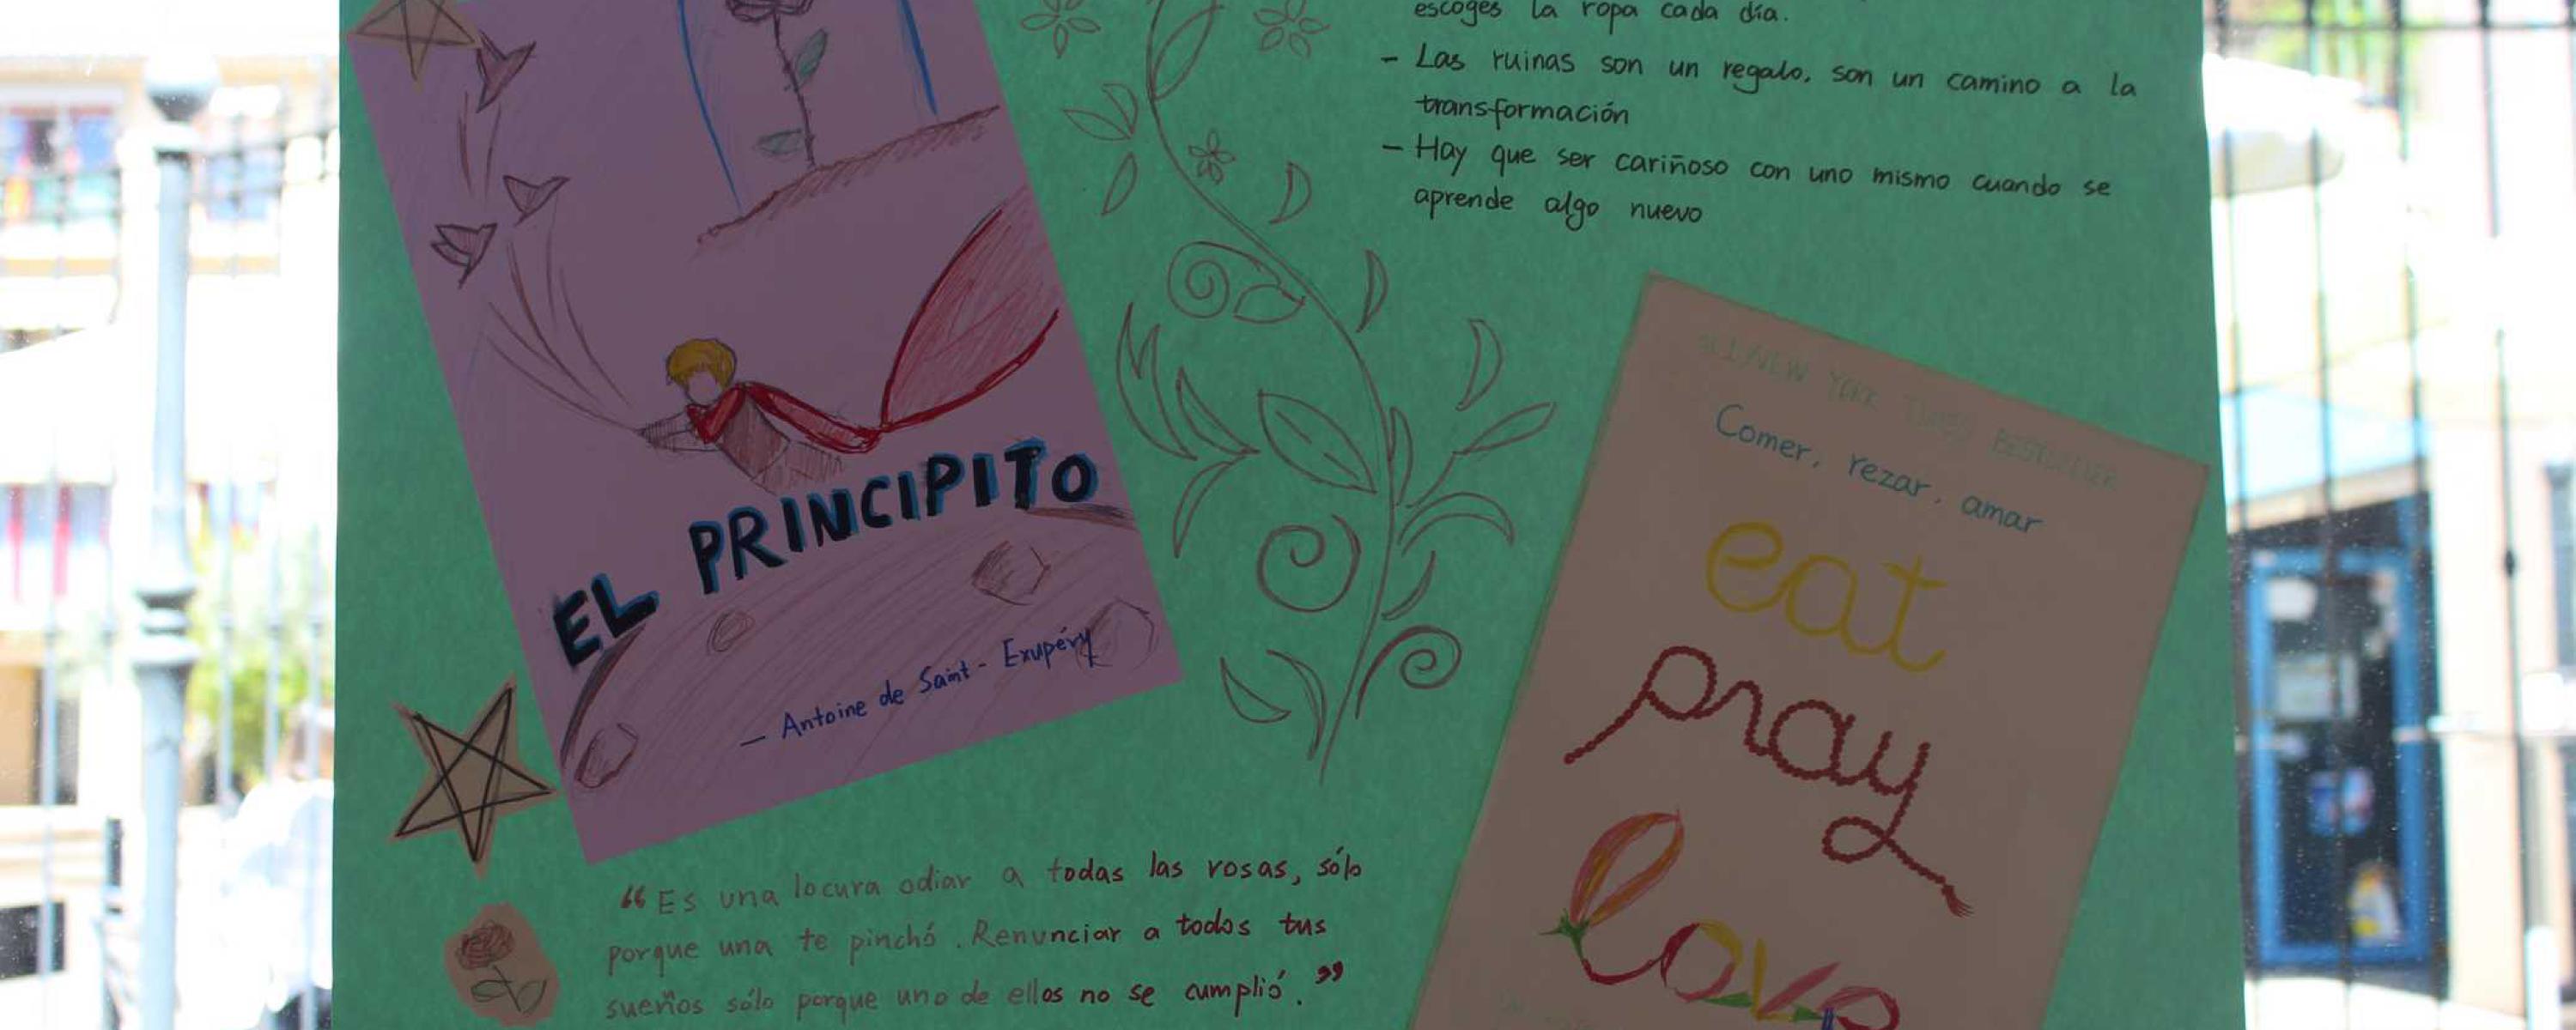 escoges la ropa cada día.
- Las ruinas son un regalo, son un camino a la
transformación
- Hay que ser cariñoso con uno mismo cuando se
aprende algo nuevo
EL PRINCIPITO
- Antoine de Saint-Exupéry
"Es una locura odiar a todas las rosas, sólo
porque una te pinchó. Renunciar a todos tus
sueños sólo porque uno de ellos no se cumplió."
NEW YORK TIMES BESTSELLER
Comer, rezar, amar
eat
pray
love